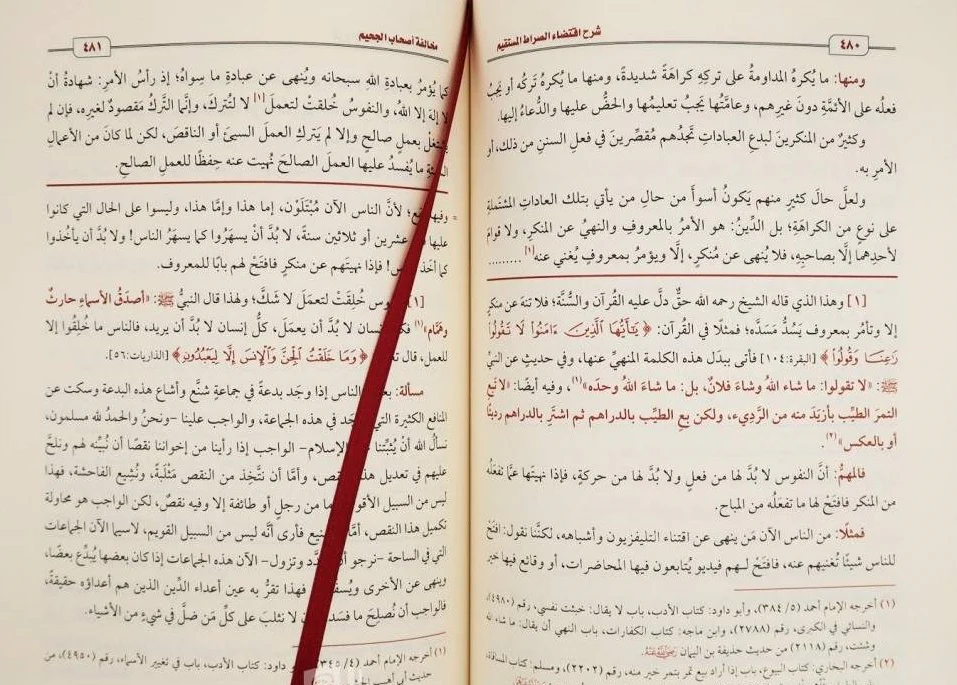 شرح اقتضاء الصراط المستقيم
٤٨٠
ومنها: ما يُكرهُ المداومةُ على تركِهِ كراهَةً شديدةً، ومنها ما يُكرهُ تَركُه أو يَجبُ
فعلُه على الأئمَّةِ دونَ غيرِهم، وعامَّتُها يجبُ تعليمُها والحضُّ عليها والدُّعاءُ إليها.
وكثيرٌ من المنكرينَ لبدعِ العباداتِ تَجدُهم مُقصِّرينَ في فعلِ السننِ من ذلك، أو
الأمرِ به.
ولعلَّ حالَ كثيرٍ منهم يَكونُ أسوأَ من حالِ من يأتي بتلك العاداتِ المشتمَلةِ
على نوعٍ من الكراهَةِ؛ بل الدِّينُ: هو الأمرُ بالمعروفِ والنهيُ عن المنكرِ، ولا قوامَ
لأحدِهما إلَّا بصاحبِه، فلا يُنهى عن مُنكرٍ، إلَّا ويؤمرُ بمعروفٍ يُغني عنه[١] .........
[١] وهذا الذي قاله الشيخ رحمه الله حقٌّ دلَّ عليه القرآن والسُّنَّة؛ فلا تنهَ عن منكرٍ
إلا وتأمُر بمعروف يَسُدُّ مَسَدَّه؛ فمثلًا في القرآن: ﴿ يَٰٓأَيُّهَا ٱلَّذِينَ ءَامَنُوا۟ لَا تَقُولُوا۟
رَٰعِنَا وَقُولُوا۟ ﴾ [البقرة:١٠٤] فأتى ببدَل هذه الكلمة المنهيِّ عنها، وفي حديثٍ عن النبيِّ
ﷺ: «لا تقولوا: ما شاء اللهُ وشاءَ فلانٌ، بل: ما شاءَ اللهُ وحدَه»(١)، وفيه أيضًا: «لا تَبِعِ
التمرَ الطيِّبَ بأزيَدَ منه من الرَّديءِ، ولكن بِعِ الطيِّبَ بالدراهم ثم اشترِ بالدراهمِ رديئًا
أو بالعكس»(٢).
فالمهمُّ: أنَّ النفوس لا بُدَّ لها من فعلٍ ولا بُدَّ لها من حركةٍ، فإذا نهيتَها عمَّا تفعَلُه
من المنكر فافتَحْ لها ما تفعَلُه من المباح.
فمثلًا: من الناس الآن مَن ينهى عن اقتناء التليفزيون وأشباهه، لكنَّنا نقول: افتَحْ
للناس شيئًا تُغنيهم عنه، فافتَحْ لـهم فيديو يُتابعون فيها المحاضرات، أو وقائعَ فيها خير
(١) أخرجه الإمام أحمد (٥/ ٣٨٤)، وأبو داود: كتاب الأدب، باب لا يقال: خبثت نفسي، رقم (٤٩٨٠)،
والنسائي في الكبرى، رقم (٢٧٨٨)، وابن ماجه: كتاب الكفارات، باب النهي أن يقال: ما شاء الله
وشئت، رقم (٢١١٨) من حديث حذيفة بن اليمان رَضِيَ اللَّهُ عَنْهُ.
(٢) أخرجه البخاري: كتاب البيوع، باب إذا أراد بيع تمر بتمر خير منه، رقم (٢٢٠٢)، ومسلم: كتاب المساقاة،
مخالفة أصحاب الجحيم
٤٨١
كما يُؤمرُ بعبادةِ اللهِ سبحانه ويُنهى عن عبادةِ ما سِواهُ؛ إذ رأسُ الأمرِ: شهادةُ أنْ
لا إلهَ إلا اللهُ، والنفوسُ خُلقتْ لتعملَ[١] لا لتُتركَ، وإنَّما التَّركُ مَقصودٌ لغيرِه، فإن لم
يشتغلْ بعملٍ صالحٍ وإلا لم يَتركِ العملَ السيئَ أو الناقصَ، لكن لما كانَ من الأعمالِ
السيئةِ ما يُفسدُ عليها العملَ الصالحَ نُهيت عنه حِفظًا للعملِ الصالحِ.
= وفيها ؛ لأنَّ الناس الآن مُبْتَلَوْن، إما هذا وإمَّا هذا، وليسوا على الحال التي كانوا
عليها عشرين أو ثلاثين سنةً، لا بُدَّ أنْ يسهَرُوا كما يسهَرُ الناس! ولا بدَّ أن يأخُذوا
كما أخَذ ! فإذا نهيتَهم عن منكرٍ فافتَحْ لهم بابًا للمعروف.
[١] خُلِقتْ لتعمَلَ لا شَكَّ؛ ولهذا قال النبيُّ ﷺ: «أصدَقُ الأسماءِ حارثٌ
وهمَّام»(١) إنسان لا بُدَّ أن يعمَلَ، كلُّ إنسان لا بُدَّ أن يريد، فالناس ما خُلِقُوا إلا
للعمل، قال ﴿ وَمَا خَلَقْتُ ٱلْجِنَّ وَٱلْإِنسَ إِلَّا لِيَعْبُدُونِ ﴾ [الذاريات:٥٦].
مسألة: الناس إذا وجَد بدعةً في جماعةٍ شنَّع وأشاع هذه البدعة وسكَت عن
المنافع الكثيرة في هذه الجماعة، والواجب علينا -ونحنُ والحمدُ لله مسلمون،
نسألُ اللهَ أنْ يُثبِّتنا الإسلام- الواجب إذا رأينا من إخواننا نقصًا أن نُبيِّنه لهم ونلحَّ
عليهم في تعديل ، وأمَّا أن نتَّخِذ من النقص مَثْلَبةً، ونُشِيع الفاحشة، فهذا
ليس من السبيل ما من رجلٍ أو طائفة إلا وفيه نقصٌ، لكن الواجب هو محاولة
تكميل هذا النقص، فأرى أنَّه ليس من السبيل القويم، لاسيما الآن الجماعات
التي في الساحة -نرجو وتزول- الآن هذه الجماعات إذا كان بعضها يُبدِّع بعضًا،
وينهى عن الأخرى فهذا تقَرُّ به عين أعداء الدِّين الذين هم أعداؤه حقيقةً،
فالواجب أن نُصلِحَ ما لا نثلبَ على كلِّ مَن ضلَّ في شيءٍ من الأشياء.
(١) أخرجه الإمام أحمد (٤/ ٣٤٥)، داود: كتاب الأدب، باب في تغيير الأسماء، رقم (٤٩٥٠)، من
حديث أبي